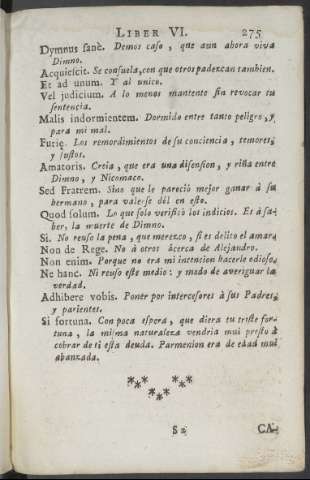 LIBER VI. 275
Dymnus sanè. Demos caso, que aun ahora viva
Dimno.
Acquiescit. Se consuela, con que otros padezcan tambien.
Et ad unum. Y al unico.
Vel judicium. A lo menos mantente sin revocar tu
sentencia.
Malis indormientem. Dormido entre tanto peligro, y
para mi mal.
Furiæ. Los remordimientos de su conciencia, temores,
y sustos.
Amatoris. Creia, que era una disension, y riña entre
Dimno, y Nicomaco.
Sed Fratrem. Sino que le pareciò mejor ganar à su
hermano, para valerse dèl en esto.
Quod solum. Lo que solo verificò los indicios. Es à sa-
ber, la muerte de Dimno.
Si. No reuso la pena, que merezco, si es delito el amar.
Non de Rege. No à otros àcerca de Alejandro.
Non enim. Porque no era mi intencion hacerle odioso.
Ne hanc. Ni reuso este medio: y modo de averiguar la
verdad.
Adhibere vobis. Poner por intercesores à sus Padres,
y parientes.
Si fortuna. Con poca espera, que diera tu triste for-
tuna, la misma naturaleza vendria mui presto à
cobrar de ti esta deuda. Parmenion era de edad mui
abanzada.
S 2 CA-